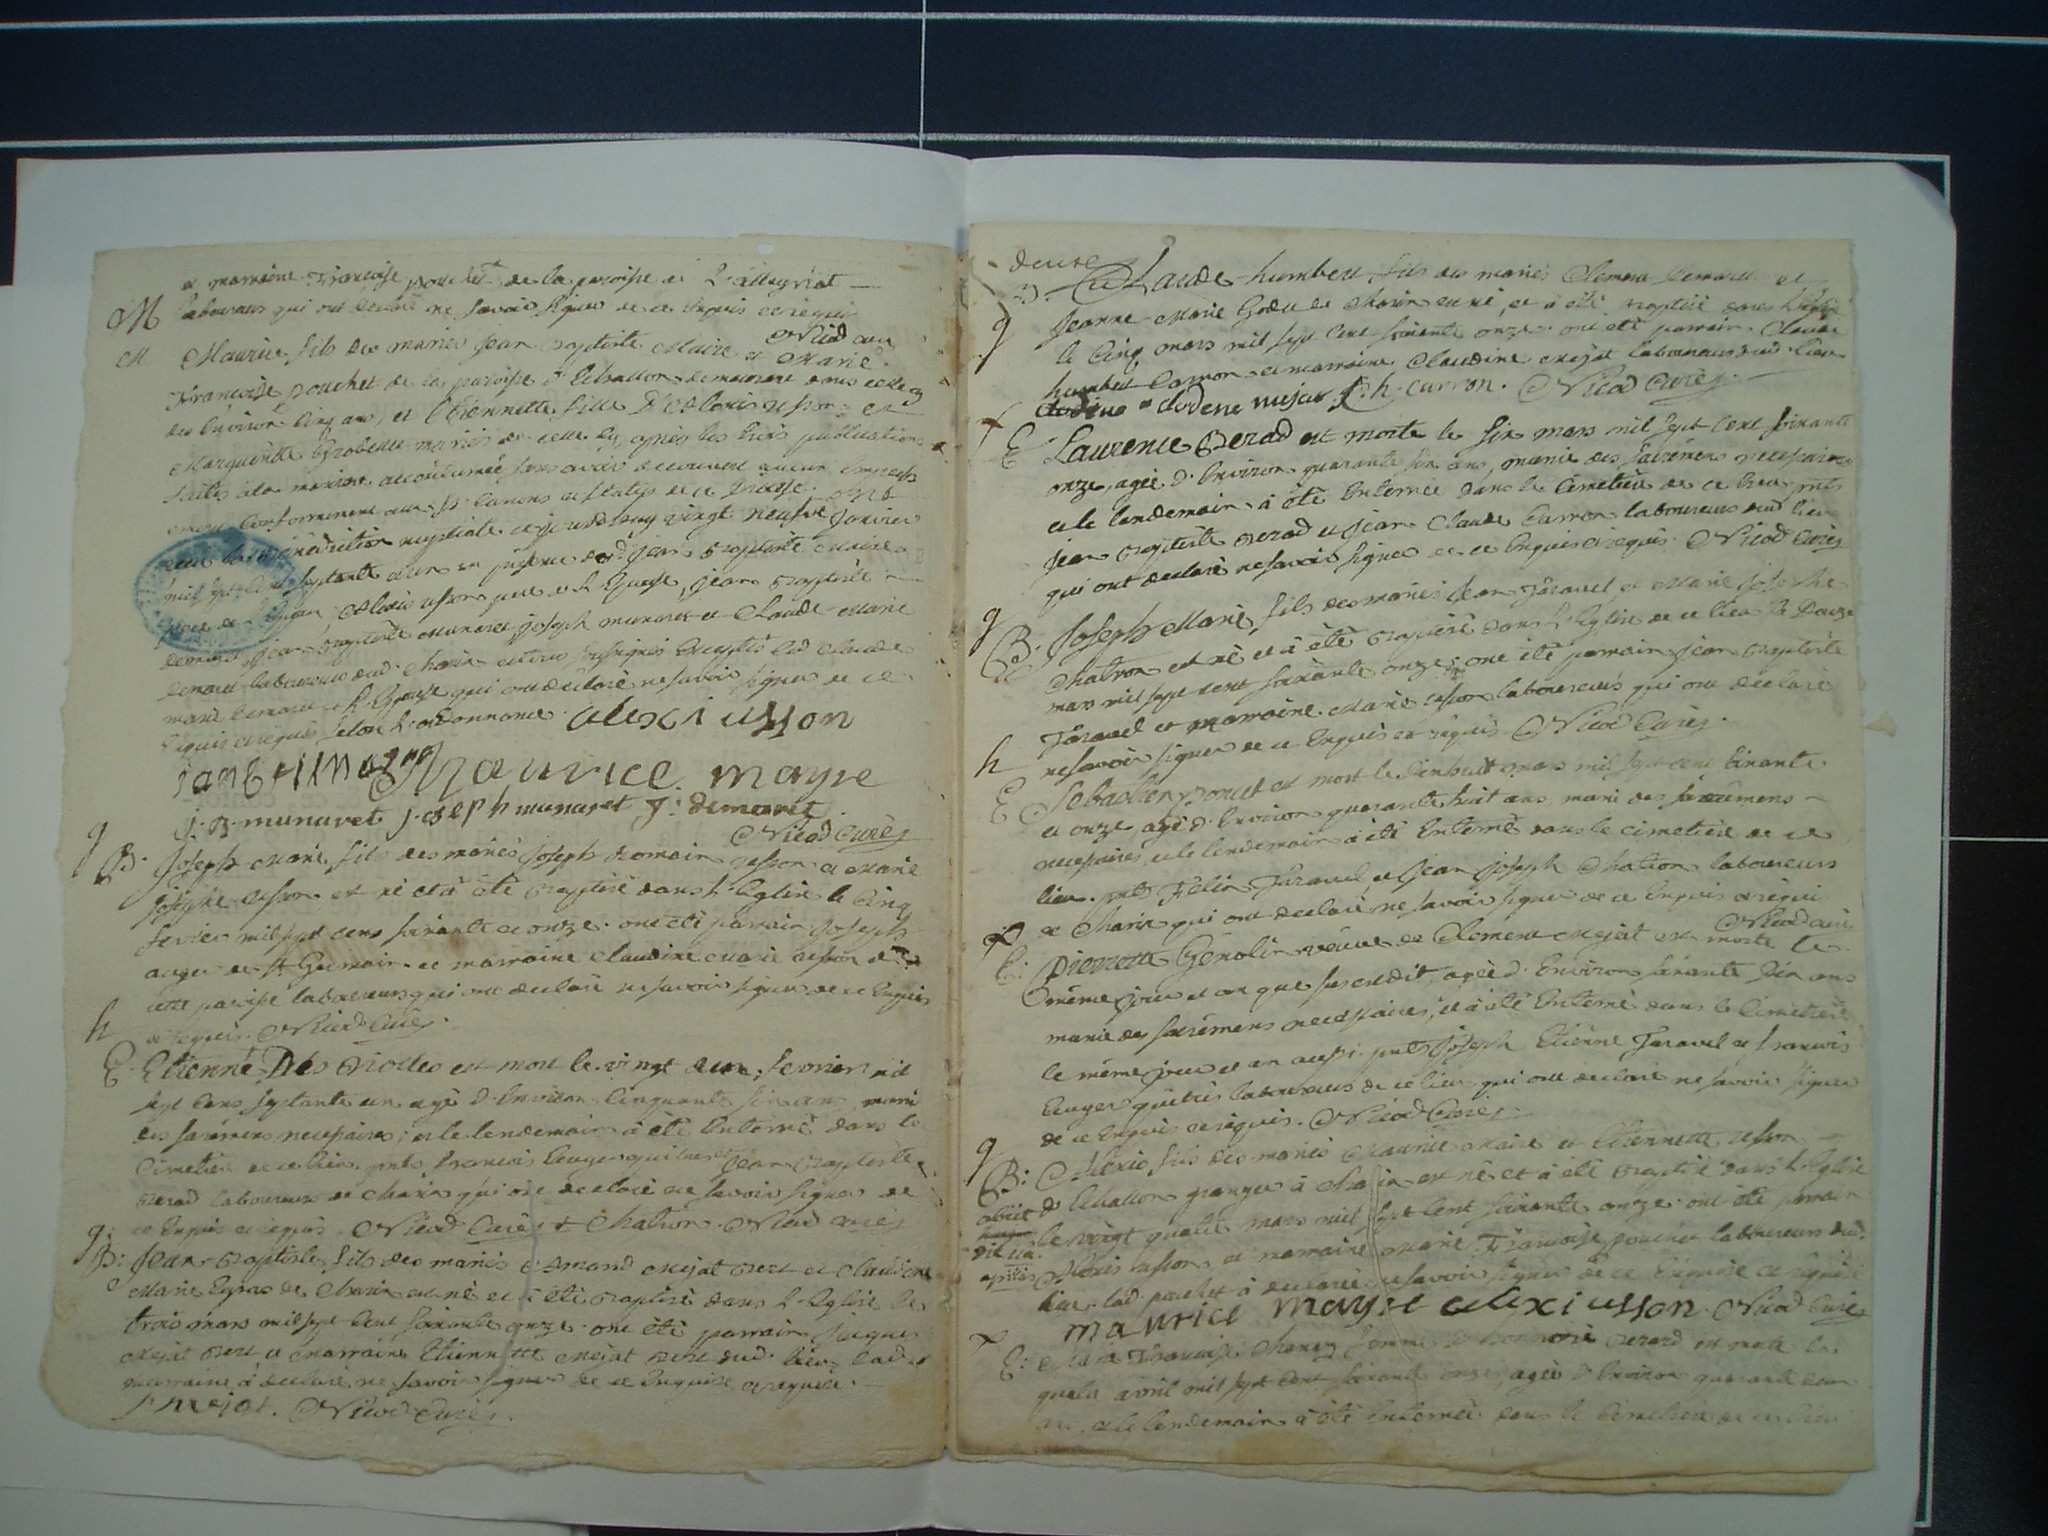 et marraine Françoise pouchet de la paroise de
laboureurs qui ont declaré ne savoir signer de ce enquis et requis
Nicod curé
M
M Maurice, fils des mariés jean Baptiste Maire et Marie
Françoise pouchet de la paroise d'Echallon demeurant dans celle cy
des environ cinq ans, et Etiennette fille d'Alexis usson et
Marguerite mariés de celle cy, après les trois publications
faites a la maniere accoutumée sans avoir decouvert aucun empech
conformement aux Sts canons et statuts de ce Diocese ont
recu la benediction nuptiale ce jourdhuy vingt neuf janvier
mil sept cent septante et un en presence dud. jean Baptiste Maire
pere de l'epoux, Alexis usson pere de l'Epouse, jean Baptiste
demaret, jean Baptiste munaret, joseph munaret et Claude Marie
demaret laboureurs dud. Charix et tous soussignés Exceptés led. Claude
marie demaret et l'Epouse qui ont declaré ne savoir signer de ce
enquis et requis selon l'ordonnance. alexi usson
Maurice mayre
j. B. munaret joseph munaret j. demaret
Nicod curé
g
B. Joseph Marie, fils des mariés joseph Romain usson et Marie
josephe usson est né et à été Baptisé dans l'Eglise le cinq
fevrier mil sept cent soixante et onze. ont été parrain joseph
auger de St Germain et marraine Claudine Marie usson de
cette paroise laboureurs qui ont declaré ne savoir signer de ce enquis
h
et requis. Nicod Curé.
E. Etienne Des est mort le vingt deux fevrier mil
sept cens septante un agé d'environ cinquante six ans, muni
des sacrémens necessaires; et le lendemain à été enterré dans le
Cimetiere de ce lieu. pnts francois et jean Baptiste
Berad laboureurs de Charix qui ont declaré ne savoir signer de
ce enquis et requis. Nicod Curé Nicod curé
g.
B. Jean-Baptiste, fils des mariés Amand mejat et Claudine
Marie de Charix est né et à été Baptisé dans l'Eglise le
trois mars mil sept cent soixante onze. ont été parrain jacques
mejat et marraine Etiennette mejat dud. lieu lad.
marraine à declaré ne savoir signer de ce enquise et requise.
j mejat. Nicod Curé.
deuxe
B. Claude-humbert, fils des mariés Clement demaret et
g
Jeanne Marie de Charix est né, et à été Baptisé dans l'Eglise
le Cinq mars mil sept cent soixante onze. ont été parrain Claude
humbert Carron et marraine Claudine mejat laboureurs dud. lieu
clodine mejat C. h. carron. Nicod Curé.
E Laurence Berad est morte le six mars mil sept cent soixante
onze, agée d'Environ quarante six ans, munie des sacrémens necessaires
et le lendemain à été Enterrée dans le Cimetiere de ce lieu pnts
jean Baptiste Berad et jean Claude Carron laboureurs dud. lieu
qui ont declaré ne savoir signer de ce Enquis et requis. Nicod Curé
g
B. Joseph-Marie, fils des mariés jean Juravel, et Marie josephe
Chatron est né et à été Baptisé dans l'Eglise de ce lieu le Douze
mars mil sept cent soixante onze; ont été parrain jean Baptiste
Juravel et marraine Marie usson laboureurs qui ont declaré
h
ne savoir signer de ce Enquis et requis. Nicod Curé.
E Sebastien poncet est mort le dixhuit mars mil sept cent soixante
et onze agé d'Environ quarante huit ans, muni des sacrémens
necessaires, et le lendemain à été Enterré dans le cimetiere de ce
lieu. pnts Felix Juravel et jean joseph Chatron laboureurs
de Charix qui ont declaré ne savoir signer de ce Enquis et requis
Nicod curé
E. Pierrette Genolin veuve de Clement mejat est morte le
même jour et an que susdit, agée d'Environ soixante dix ans
munie des sacrémens necessaires, et à été Enterré dans le Cimetiere
le même jour et an aussi. pnts joseph Etienne Juravel et francois
laboureurs de ce lieu qui ont declaré ne savoir signer
de ce Enquis et requis. Nicod Curé.
g
B. Alexis, fils des mariés Maurice Maire et Etiennette usson
d'Echallon granger à Charix est né et à été Baptisé dans l'Eglise
le vingt quatre mars mil sept cent soixante onze. ont été parrain
Alexis usson et marraine Marie Françoise pouchet laboureurs dud.
lieu. lad. pouchet à declaré ne savoir signer de ce Enquise et requise
maurice mayre alexi usson. Nicod Curé
E. Françoise femme Berard est morte le
quatre avril mil sept cent soixante onze, agée d'Environ quarante
ans, et le lendemain à été Enterrée dans le Cimetiere de ce lieu